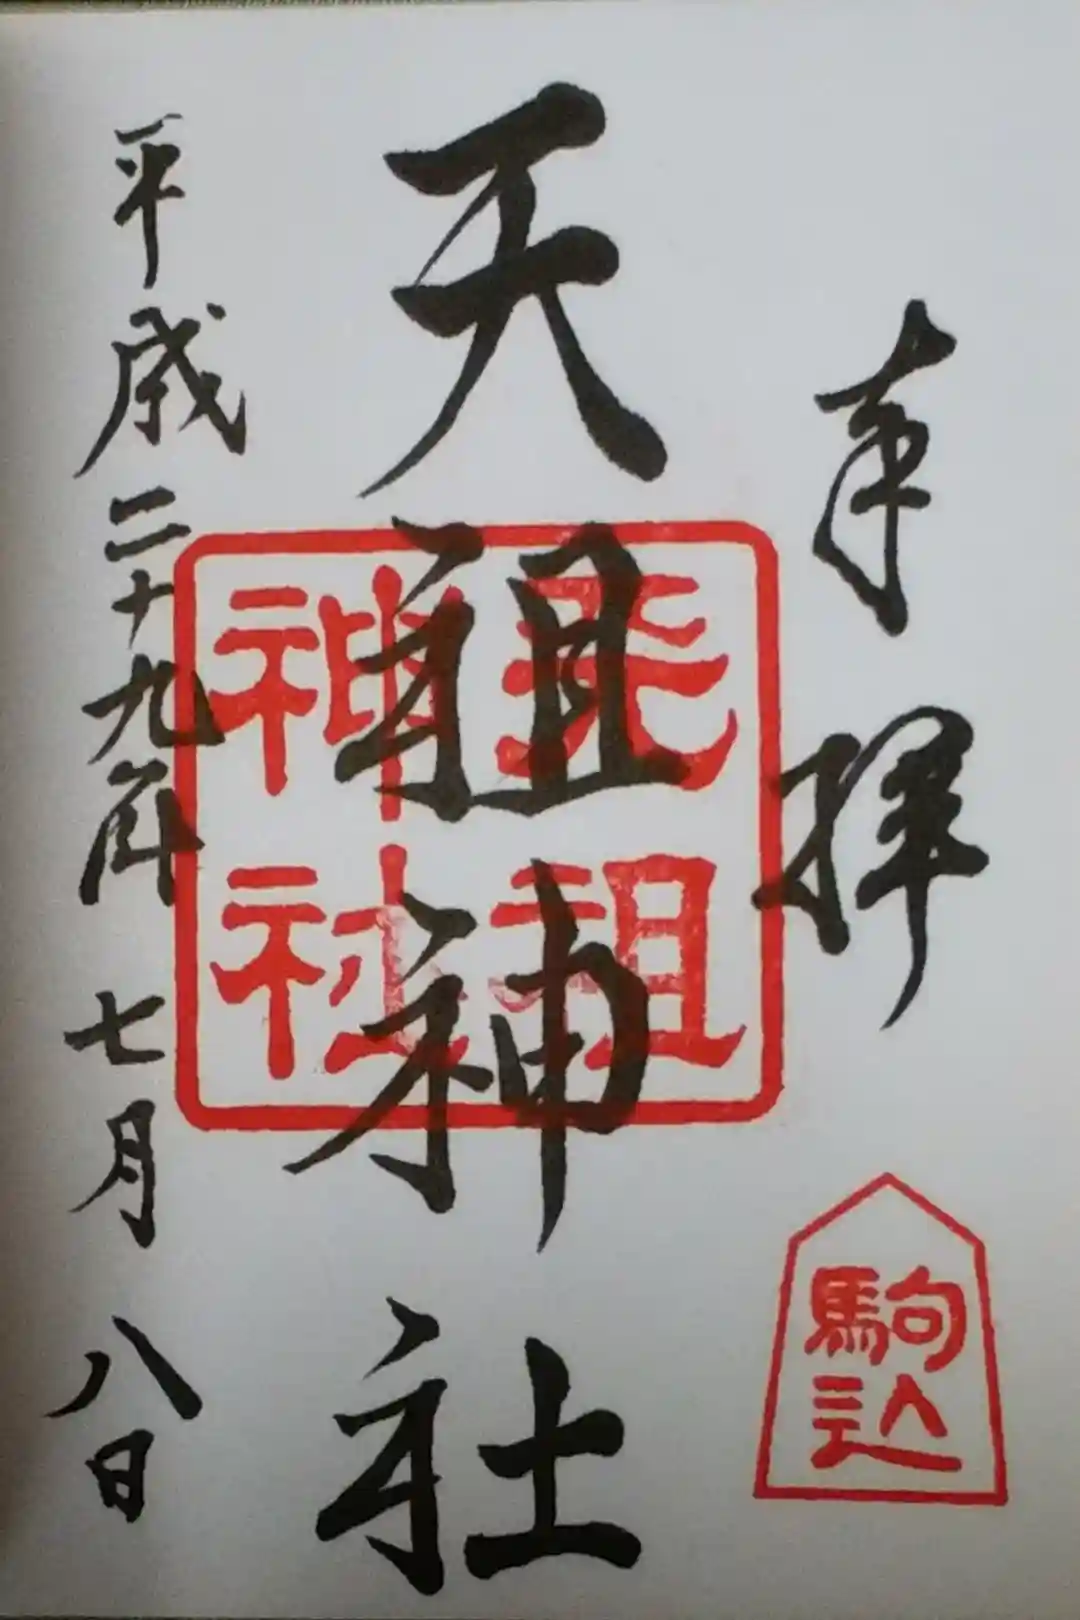 奉拝
駒込
天祖神社
天祖
神社
平成二十九年七月八日